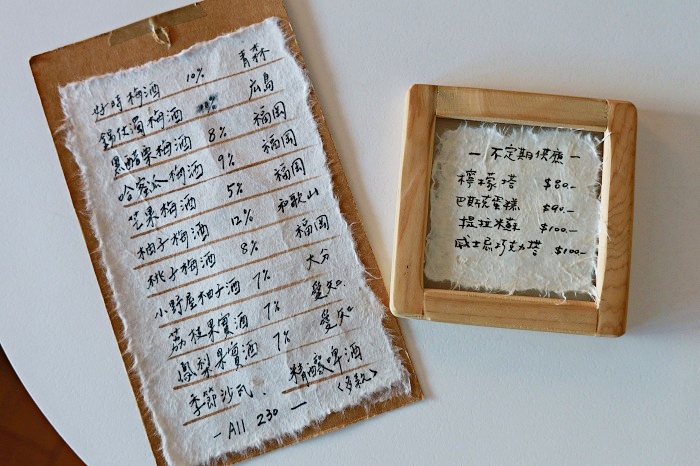 好時梅酒 10% 青森
鶴仕濁梅酒 廣島
黑醋栗梅酒 8% 福岡
哈蜜瓜梅酒 9% 福岡
芒果梅酒 5% 福岡
柚子梅酒 12% 和歌山
桃子梅酒 8% 福岡
小野屋柚子酒 7% 大分
荔枝果實酒 7% 愛知
鳳梨果實酒 7% 愛知
季節沙瓦、 精釀啤酒
〈多款〉
- All 230 -
- 不定期供應 -
檸檬塔 $80.-
巴斯克蛋糕 $90.-
提拉米蘇 $100.-
威士忌巧克力塔 $100.-